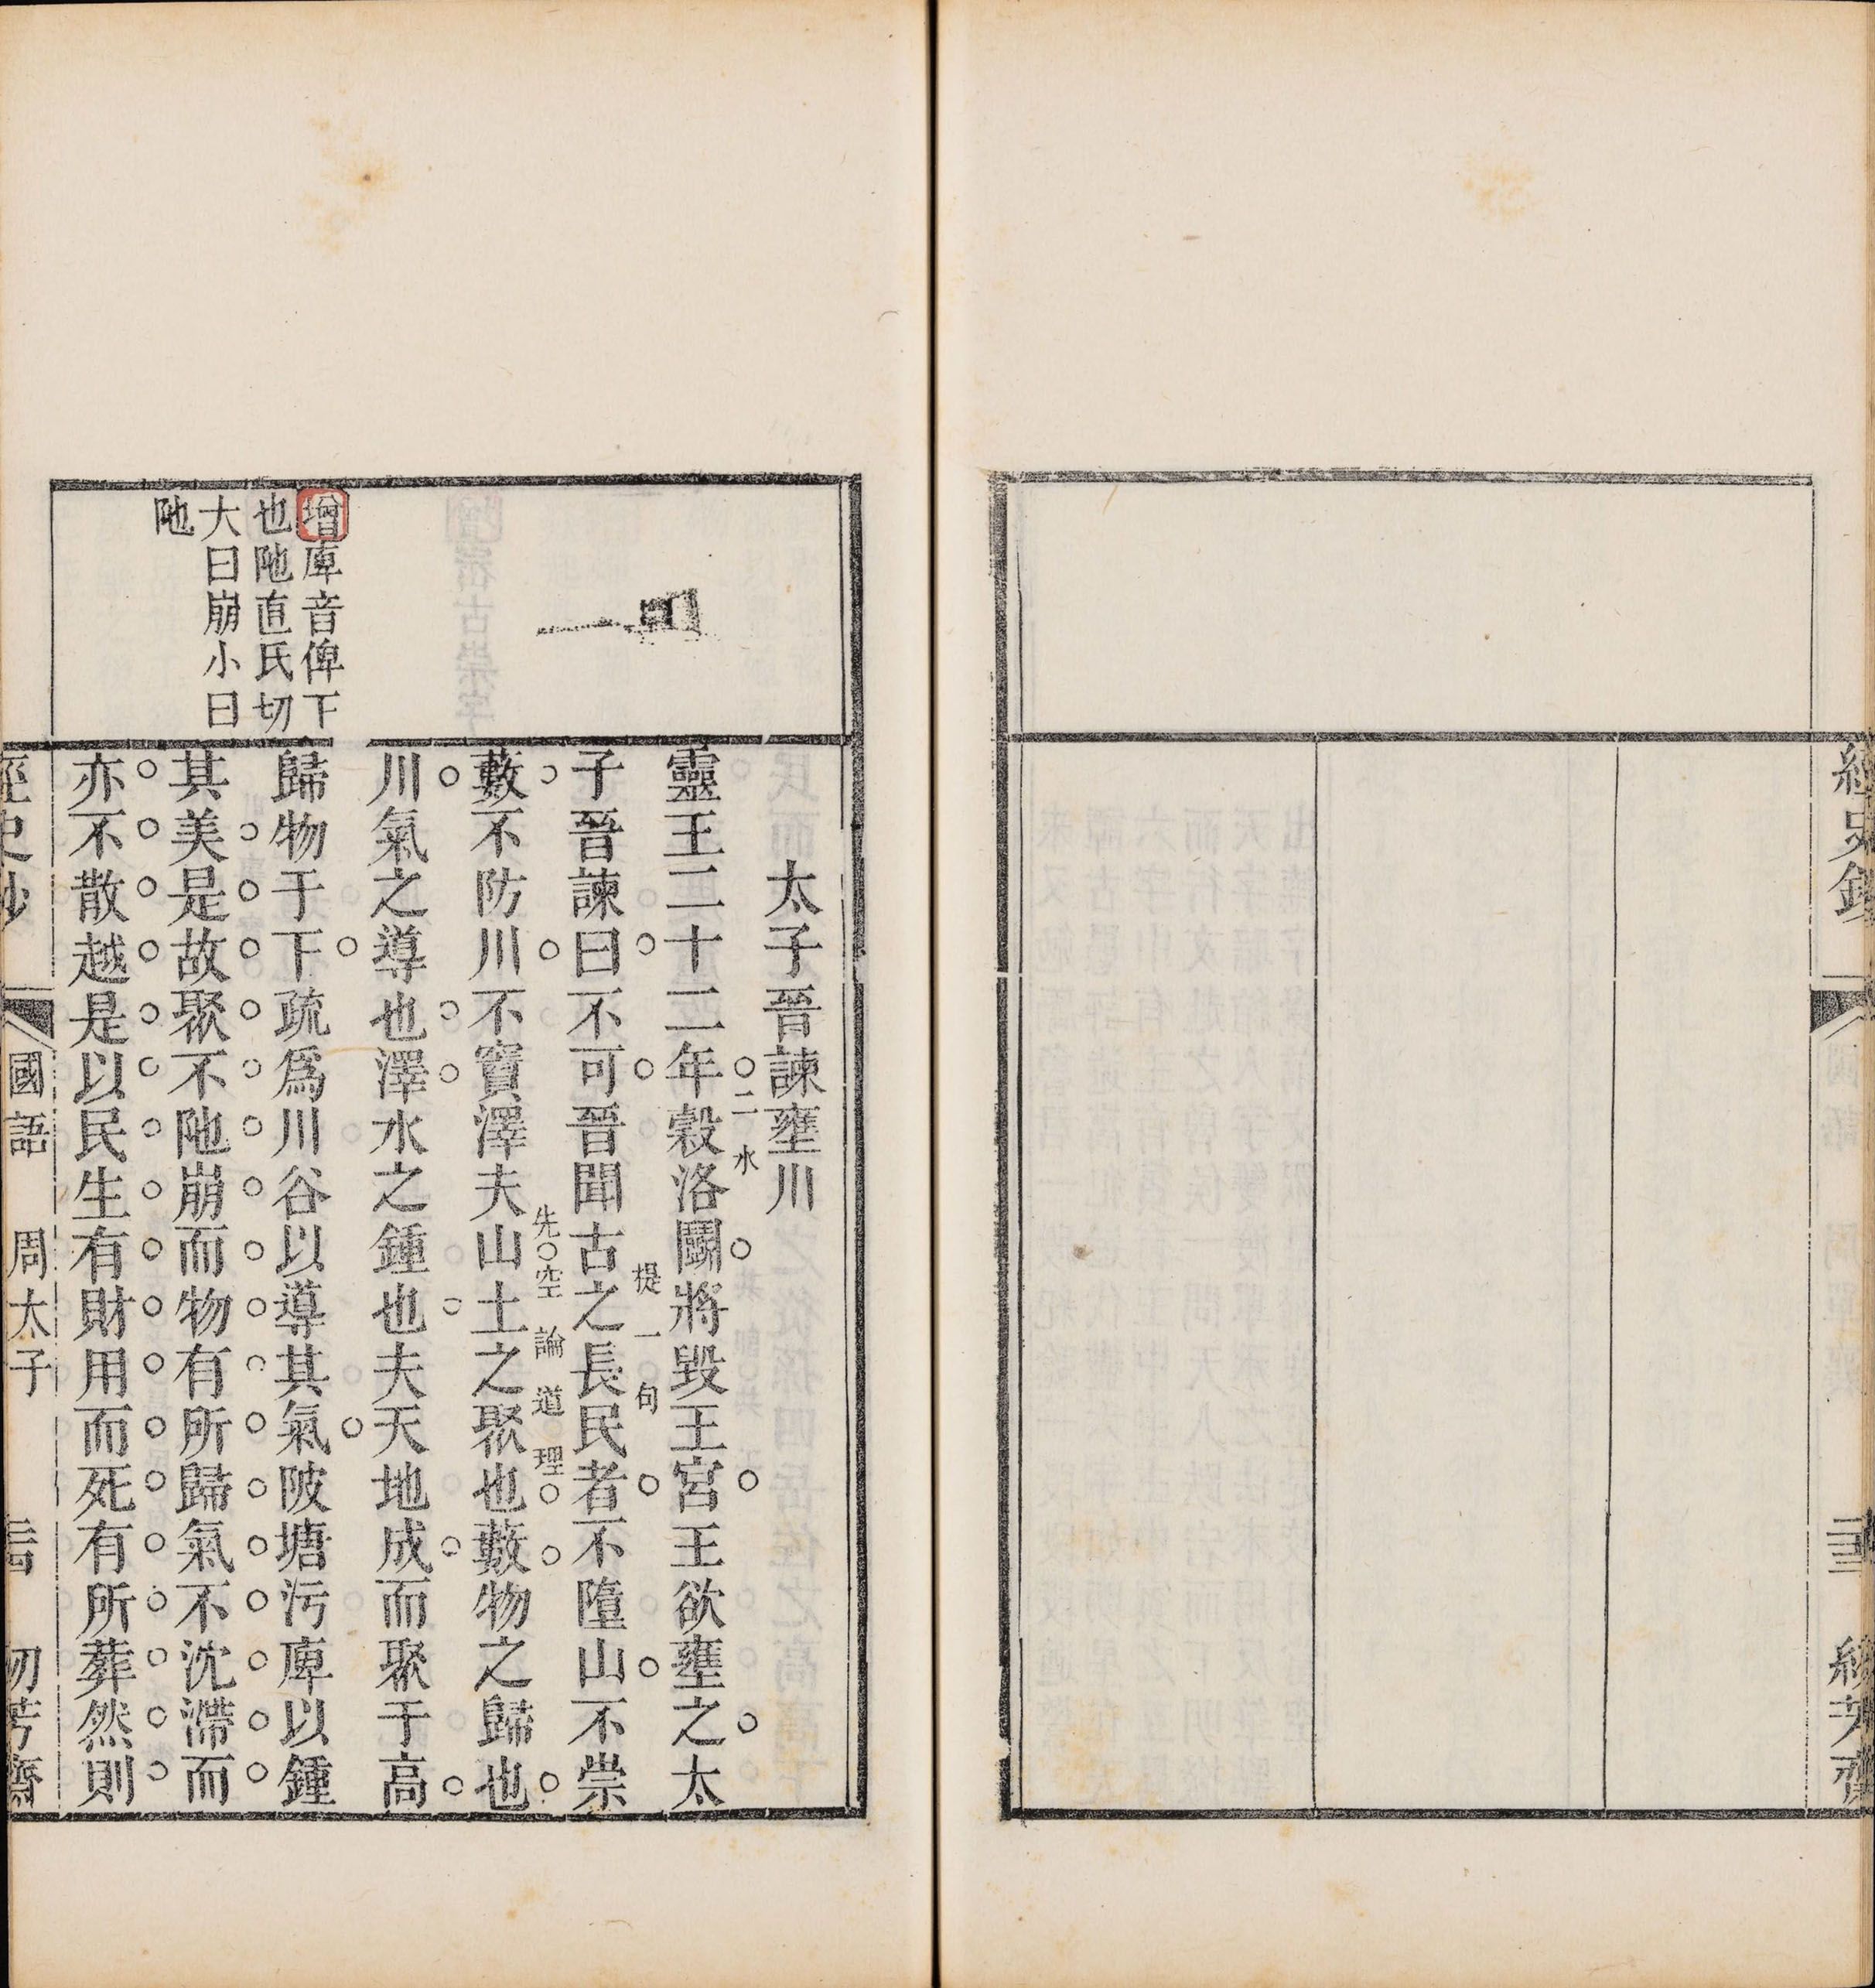 經史鈔
三
紉芳齋
增庳音俾下
也阤直氏切
大曰崩小曰
阤
太子晉諫壅川
靈王二十二年穀洛鬭將毀王宮王欲壅之太
二水
子晉諫曰不可晉聞古之長民者不隳山不崇
提一句
藪不防川不竇澤夫山土之聚也藪物之歸也
先空論道理
川氣之導也澤水之鍾也夫天地成而聚于高
歸物于下疏爲川谷以導其氣陂塘污庳以鍾
其美是故聚不阤崩而物有所歸氣不沈滯而
亦不散越是以民生有財用而死有所葬然則
經史鈔
國語
周太子
紉芳齋